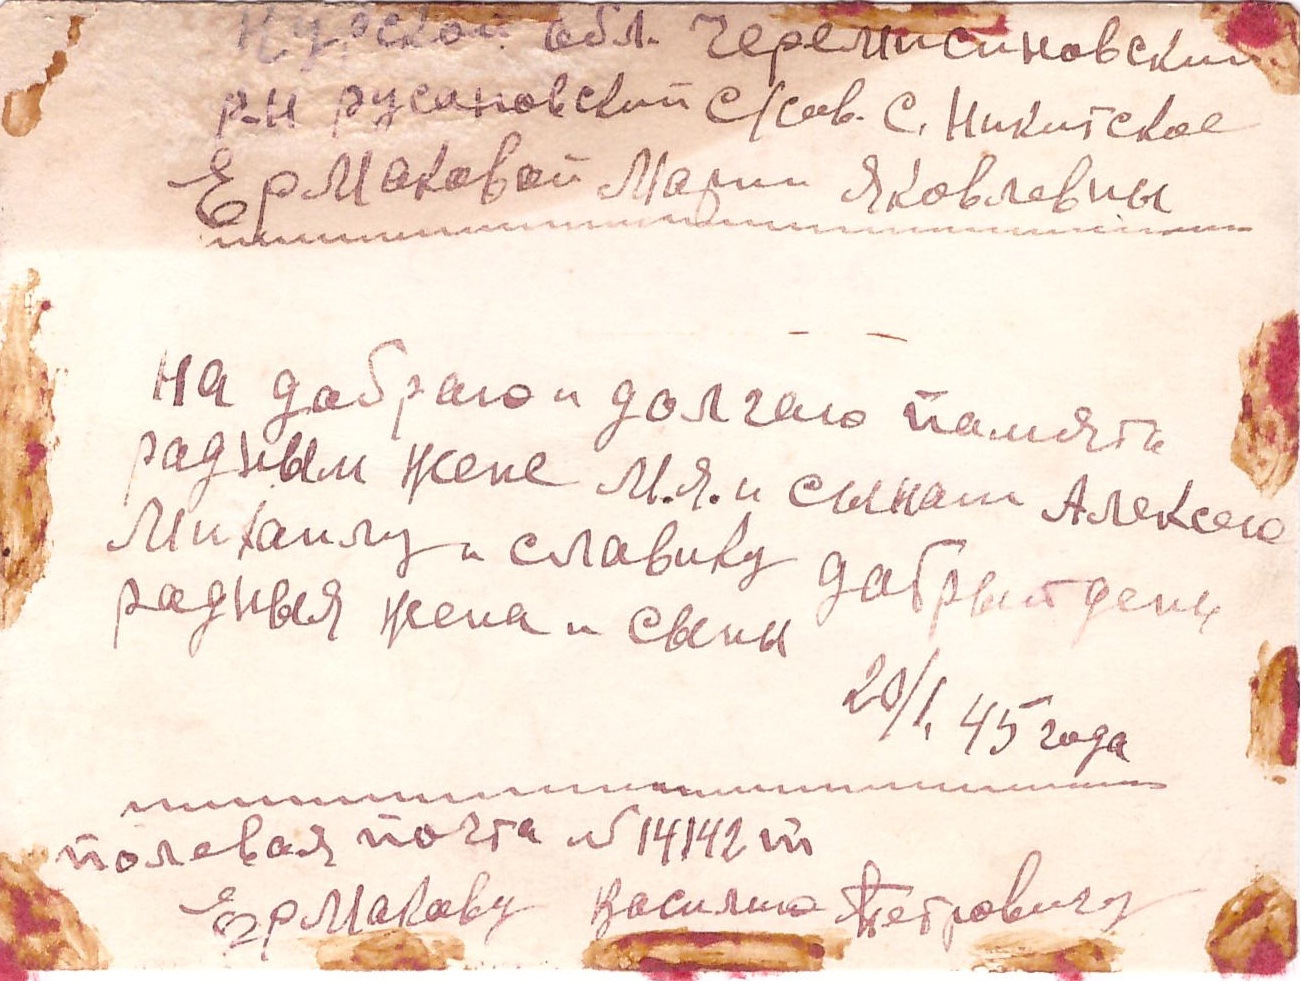 Курской обл. Черемисиновский
р-н русановский с/сов. с. Никитское
Ермаковой Марии Яковлевны
на добраю и долгаю память
радным жене М.Я. и сынам Алексею
Михаилу и славику добрый день
радныя жена и сыны
20/1. 45 года
полевая почта № 14142 т
Ермакаву Василию Петровичу